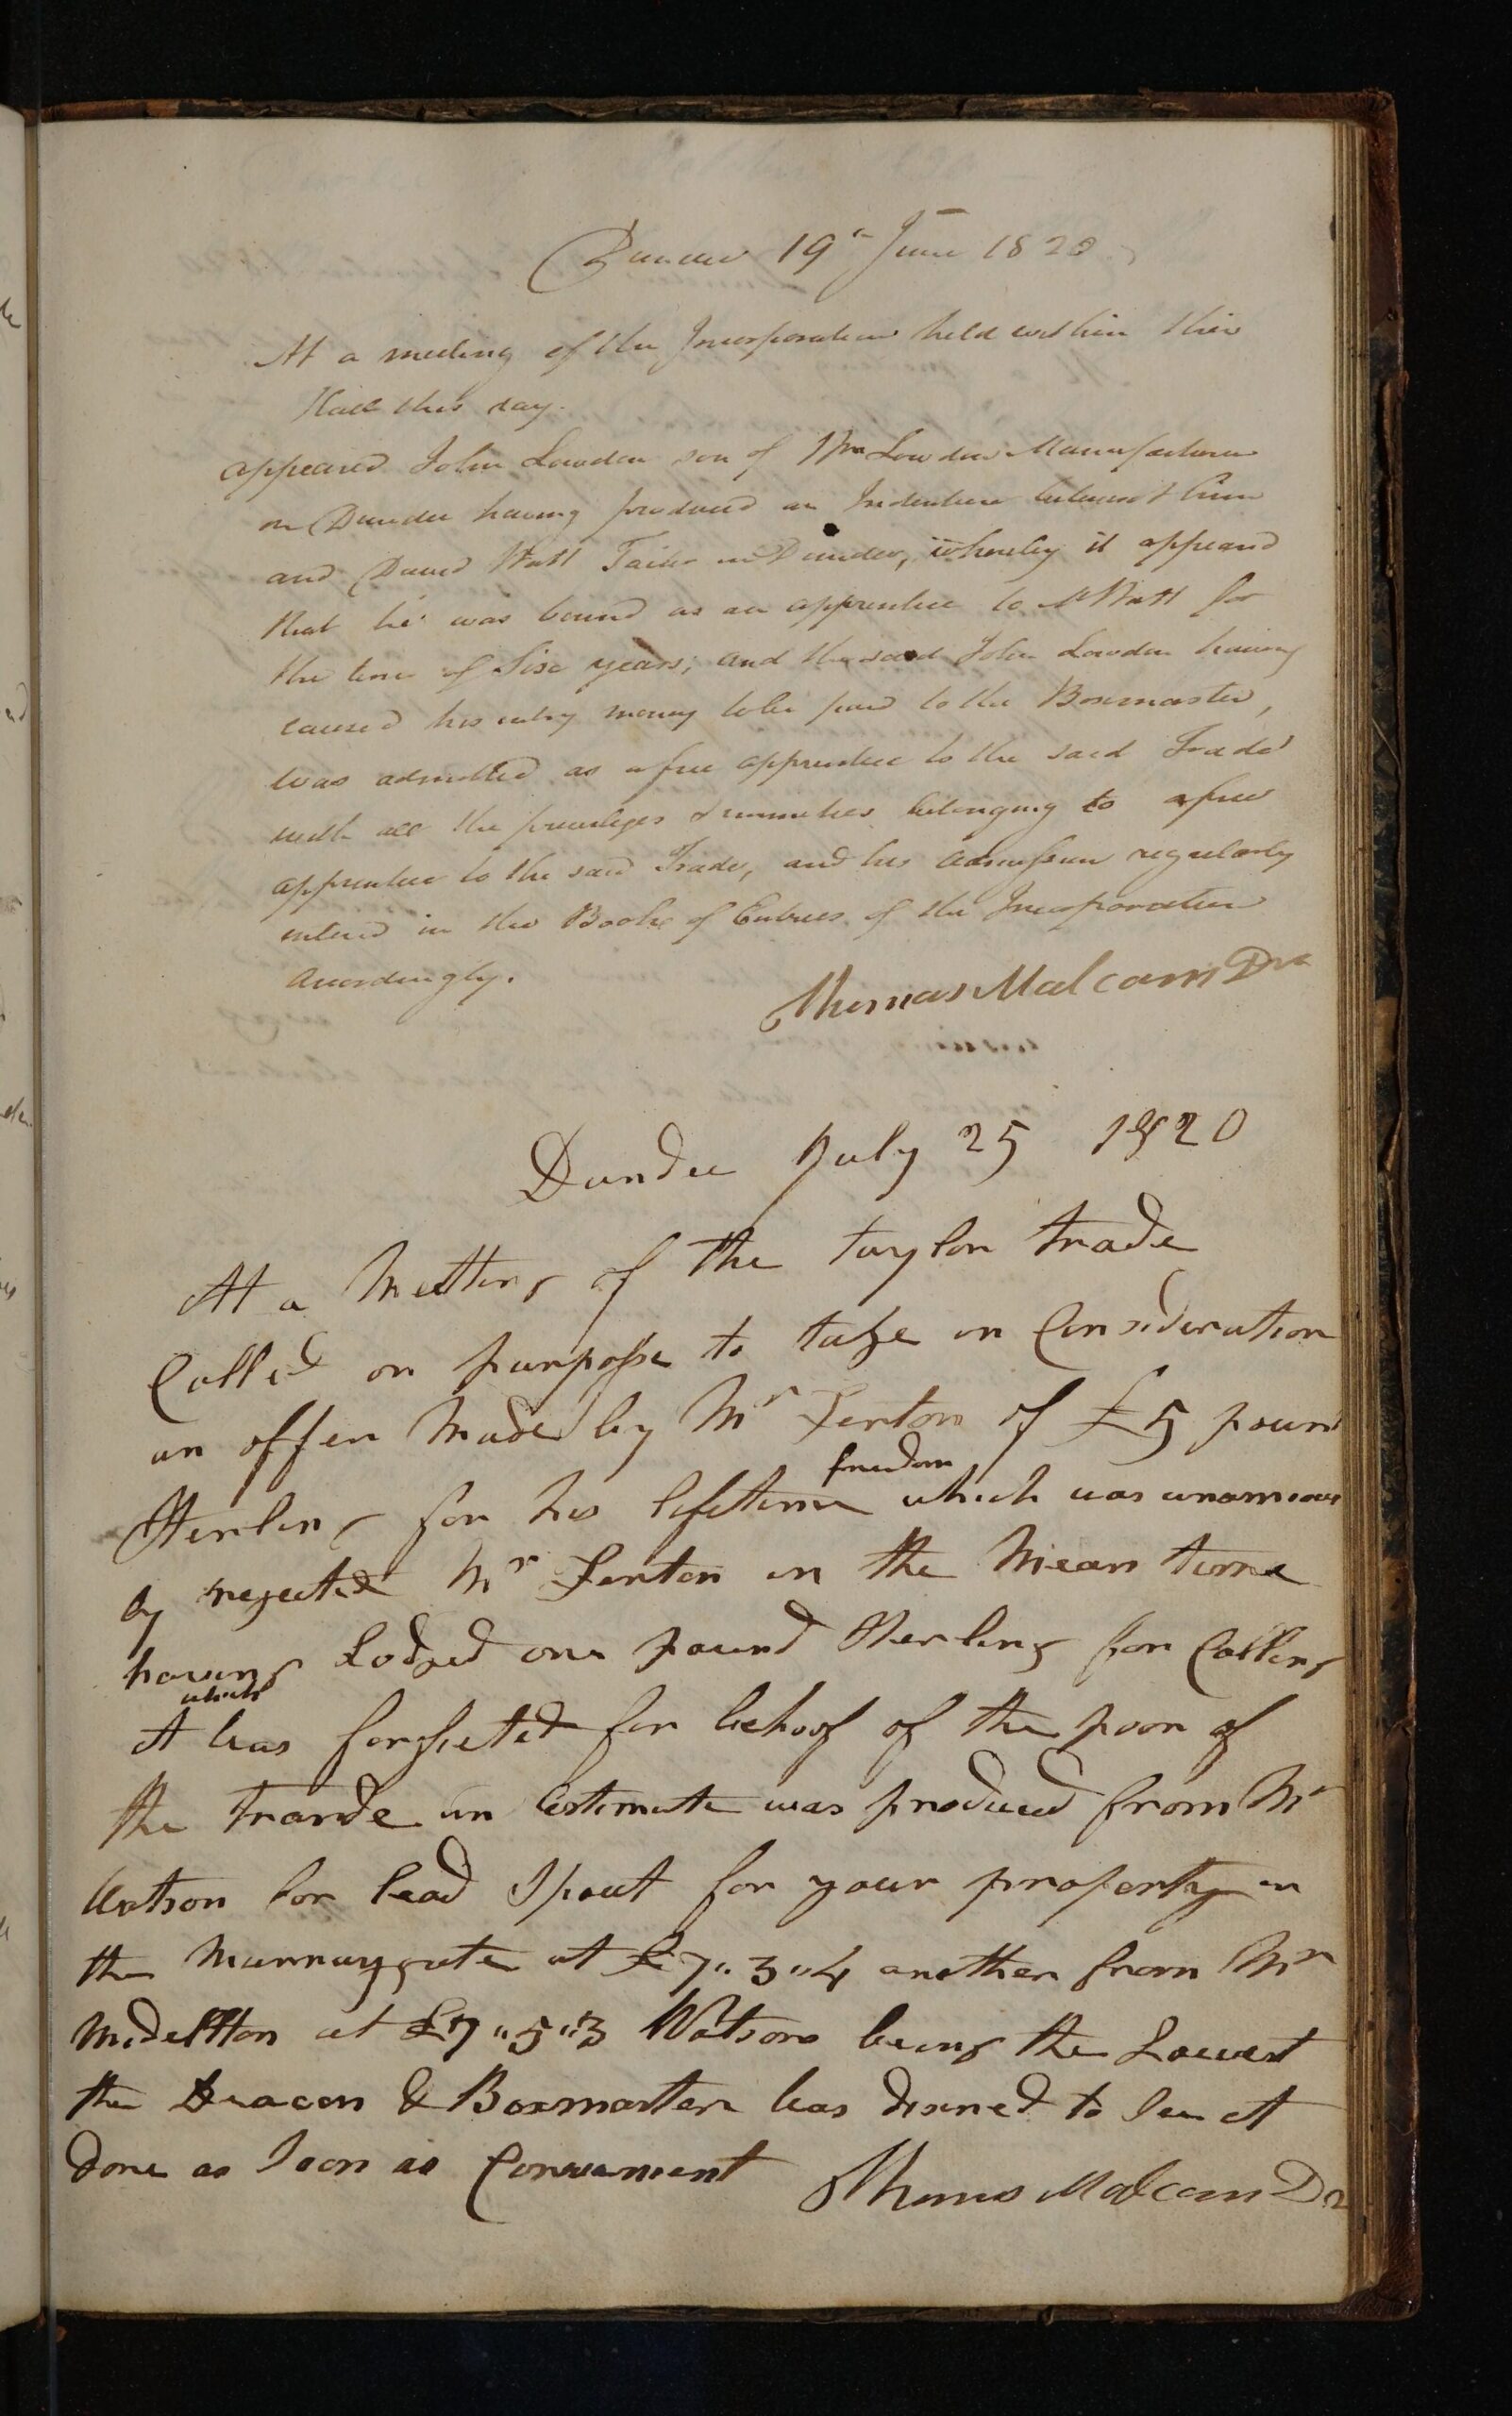 Dundee 19th June 1820
At a meeting of the Incorporation held within their
Hall this day.
appeared John Lowden son of Wm Lowden Manufacturer
in Dundee having produced an Indenture between him
and David Watt Tailor in Dundee, whereby it appeared
that he was bound as an apprentice to Mr Watt for
the term of Six years; and the said John Lowden having
caused his entry money to be paid to the Boxmaster,
was admitted as a free apprentice to the said Trade
with all the priviliges & immunities belonging to a free
apprentice to the said Trade, and his admission regularly
entered in the Booke of Entries of the Incorporation
Accordingly.
Thomas Malcom Dn
Dundee July 25 1820
At a Metting of the taylor trade
Called on purposse to take in Consideration
an offer Made by Mr Fenton of £5 pound
Sterling for his lifetime freedom which was unanimous
ly rejected Mr Fenton in the Mean time
having Lodged one pound Sterling for Calling
which
it was forfieted for behoof of the poor of
the trande an Estimate was produced from Mr
Watson for lead Spout for your property in
the Murraygate at £7"3"4 another from Mr
Midellton at £7"5"3 Watsons being the Lowest
the Deacon & Boxmaster was desired to See it
done as Soon as Convenient
Thomas Malcom Dn